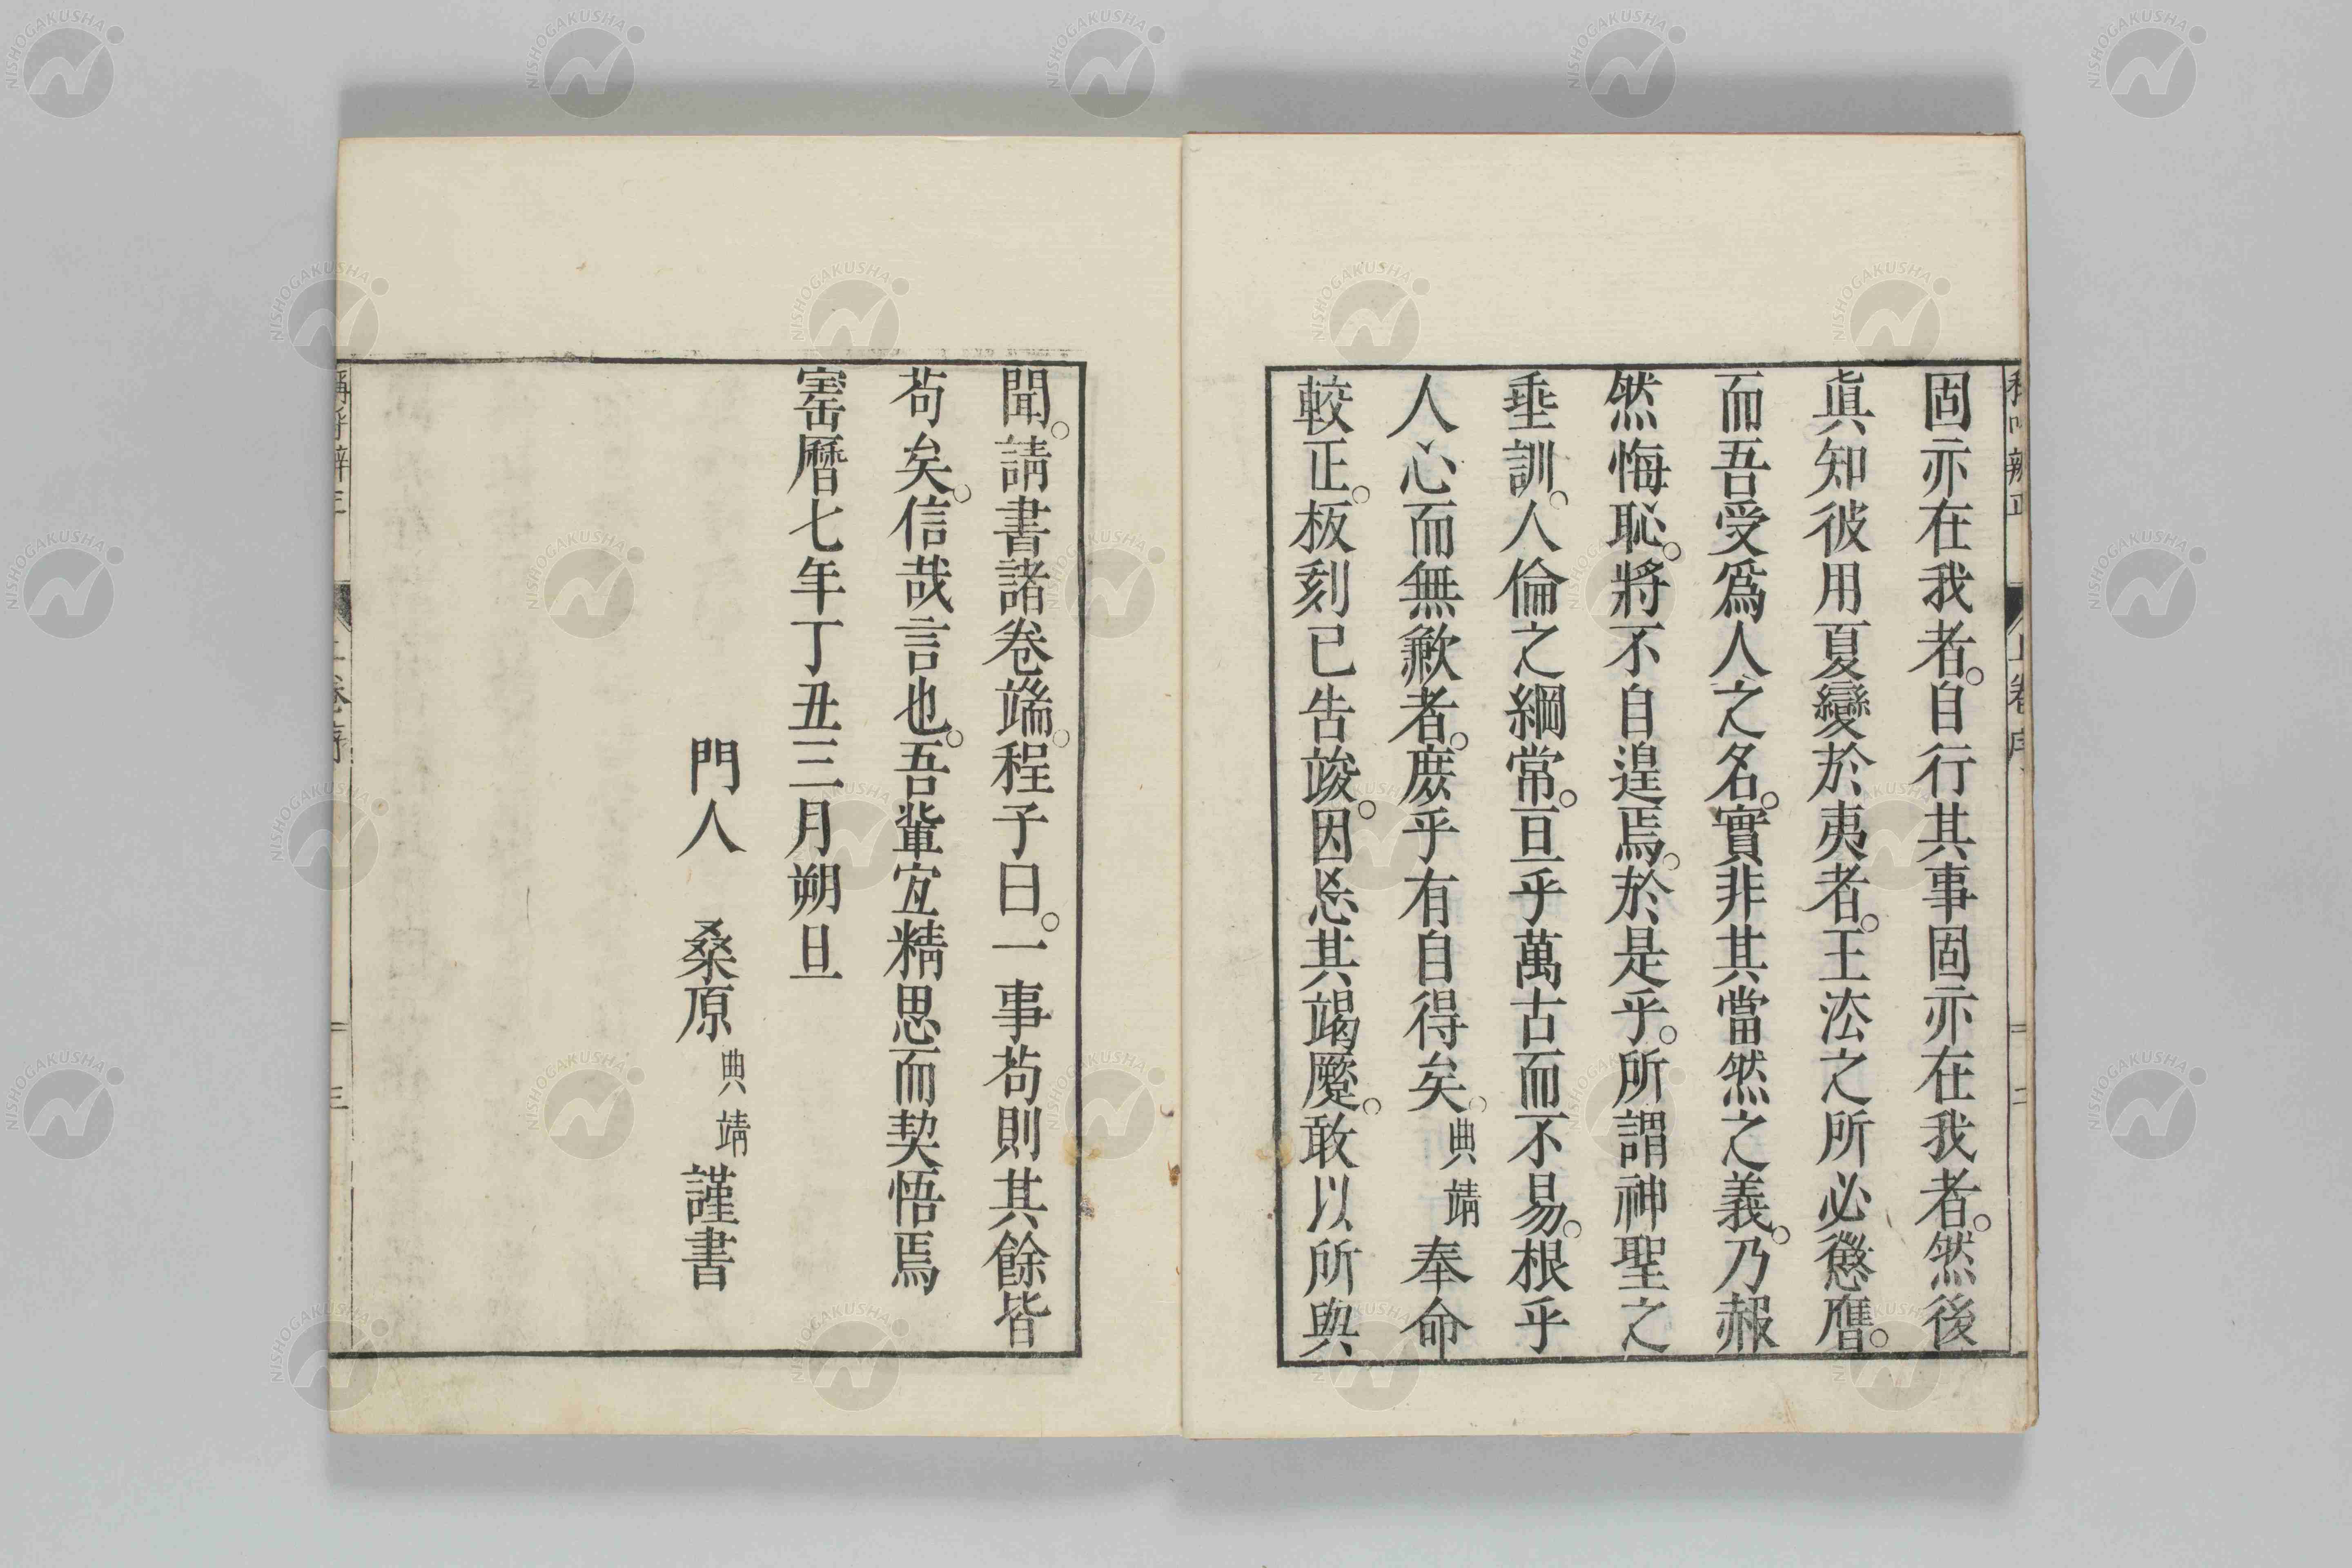 固亦在我者。自行其事固亦在我者。然後
眞知彼用夏變於夷者。王法之所必懲膺。
而吾受爲人之名。實非其當然之義。乃赧
然悔恥。將不自遑焉。於是乎。所謂神聖之
垂訓。人倫之綱常。亘乎萬古而不易。根乎
人心而無歉者。庶乎有自得矣。典靖奉命
較正。板刻已告竣。因忘其竭蹷。敢以所與
聞。請書諸卷端。程子曰。一事苟則其餘皆
苟矣。信哉言也。吾輩宜精思而契悟焉
寳曆七年丁丑三月朔旦
門人 桑原典靖謹書
稱呼辨正 上卷序 二
稱呼辨正 上卷序 三
NISHOGAKUSHA